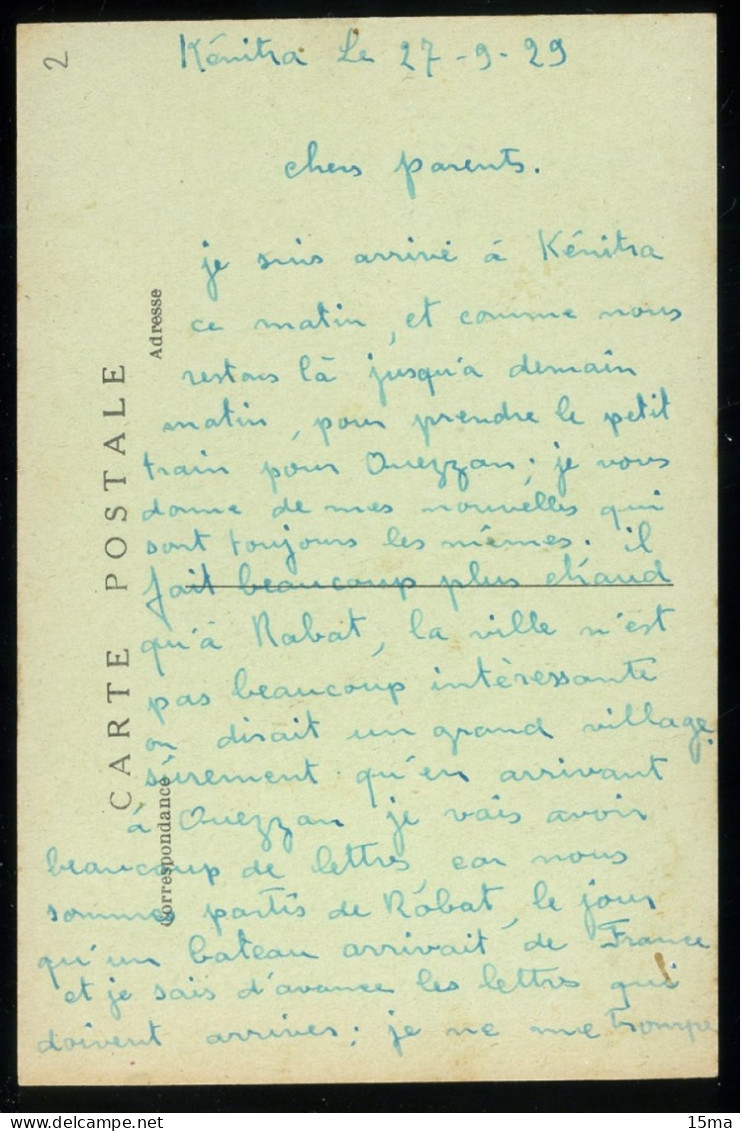 2
Kénitra Le 27-9-29
chers parents.
je suis arrivé à Kénitra
ce matin, et comme nous
restons là jusqu'à demain
matin, pour prendre le petit
train pour Ouezzan; je vous
donne de mes nouvelles qui
sont toujours les mêmes. il
fait beaucoup plus chaud
qu'à Rabat, la ville n'est
pas beaucoup intèressante
on dirait un grand village.
sûrement qu'en arrivant
à Ouezzan je vais avoir
beaucoup de lettres car nous
somme partis de Rabat, le jour
qu'un bateau arrivait de France
et je sais d'avance les lettres qui
doivent arrives; je ne me trompe
CARTE POSTALE
Adresse
Correspondance
15ma